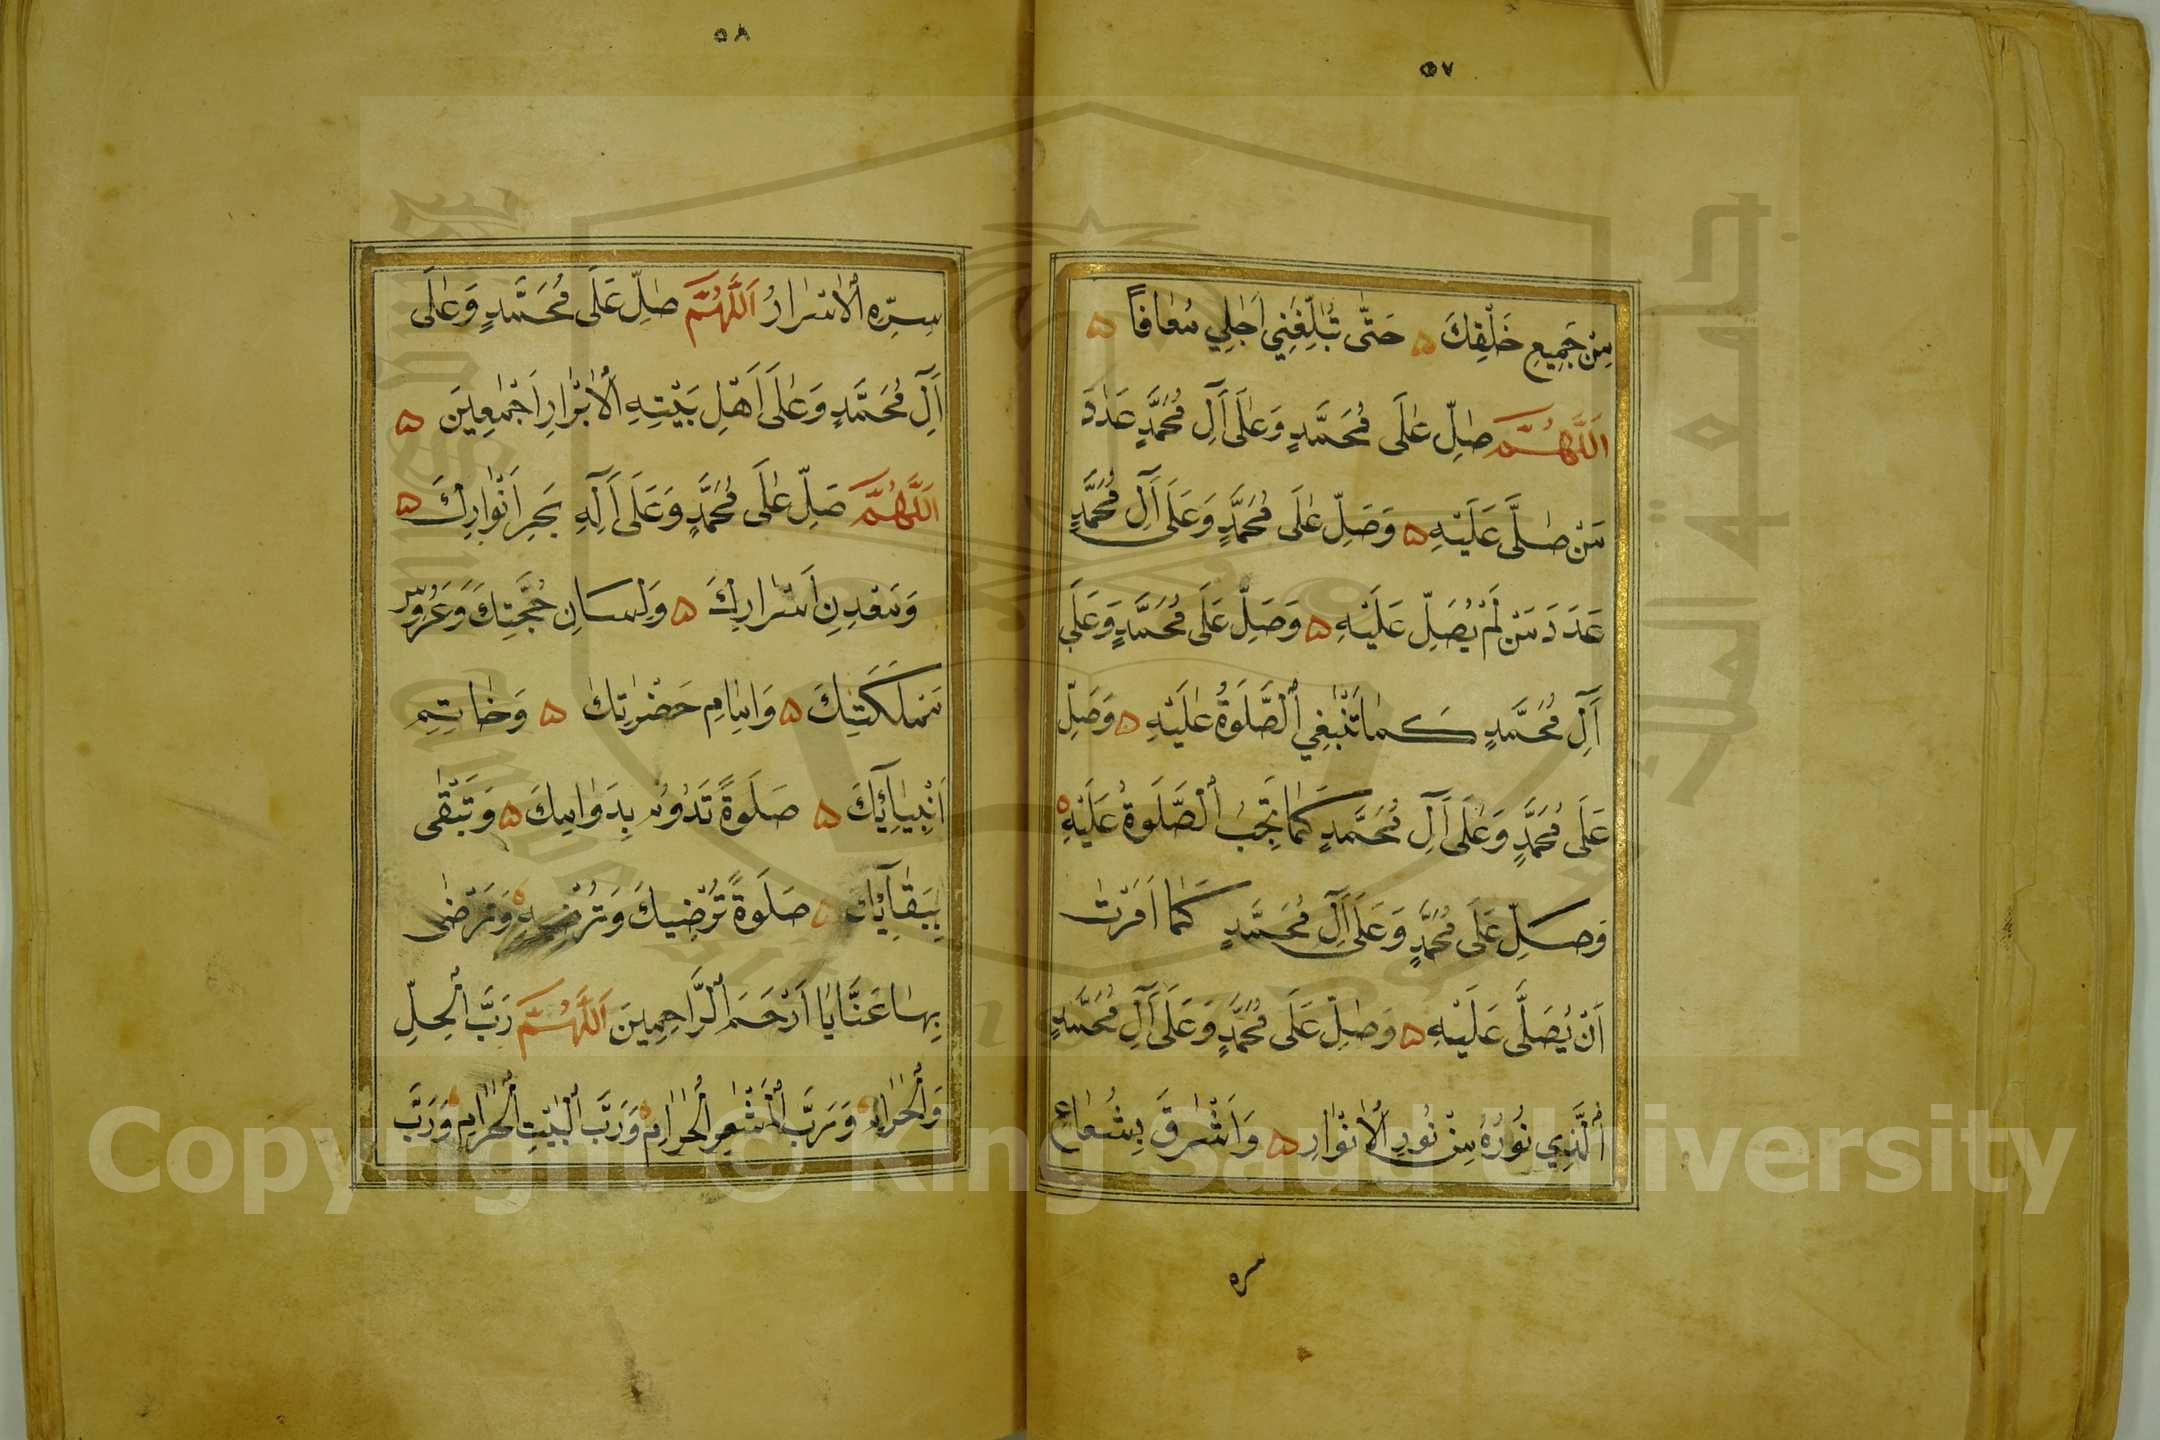 ٥٧
مِنْ جَمِيعِ خَلْقِكَ ۵ حَتّٰى تُبَلِّغَنِي اَجَلِي مُعَافًا ۵
اَللّٰهُمَّ صَلِّ عَلَى مُحَمَّدٍ وَعَلَى اٰلِ مُحَمَّدٍ عَدَدَ
مَنْ صَلَّى عَلَيْهِ ۵ وَصَلِّ عَلَى مُحَمَّدٍ وَعَلَى اٰلِ مُحَمَّدٍ
عَدَدَ مَنْ لَمْ يُصَلِّ عَلَيْهِ ۵ وَصَلِّ عَلَى مُحَمَّدٍ وَعَلَى
اٰلِ مُحَمَّدٍ كَمَا تَنْبَغِي الصَّلَوةُ عَلَيْهِ ۵ وَصَلِّ
عَلَى مُحَمَّدٍ وَعَلَى اٰلِ مُحَمَّدٍ كَمَا تَجِبُ الصَّلَوةُ عَلَيْهِ ۵
وَصَلِّ عَلَى مُحَمَّدٍ وَعَلَى اٰلِ مُحَمَّدٍ كَمَا اَمَرْتَ
اَنْ يُصَلَّى عَلَيْهِ ۵ وَصَلِّ عَلَى مُحَمَّدٍ وَعَلَى اٰلِ مُحَمَّدٍ
الَّذِي نُورُهُ مِنْ نُورِ الْاَنْوَارِ ۵ وَاَشْرَقَ بِشُعَاعِ
سره
٥٨
سِرِّهِ الْاَسْرَارُ اَللّٰهُمَّ صَلِّ عَلَى مُحَمَّدٍ وَعَلَى
اٰلِ مُحَمَّدٍ وَعَلَى اَهْلِ بَيْتِهِ الْاَبْرَارِ اَجْمَعِينَ ۵
اَللّٰهُمَّ صَلِّ عَلَى مُحَمَّدٍ وَعَلَى اٰلِهِ بَحْرِ اَنْوَارِكَ ۵
وَمَعْدِنِ اَسْرَارِكَ ۵ وَلِسَانِ حُجَّتِكَ وَعَرُوسِ
مَمْلَكَتِكَ ۵ وَاِمَامِ حَضْرَتِكَ ۵ وَخَاتِمِ
اَنْبِيَآئِكَ ۵ صَلَوةً تَدُومُ بِدَوَامِكَ ۵ وَتَبْقٰى
بِبَقَآئِكَ ۵ صَلَوةً تُرْضِيكَ وَتُرْضِيهِ ۵ وَتَرْضٰى
بِهَا عَنَّا يَا اَرْحَمَ الرَّاحِمِينَ اَللّٰهُمَّ رَبَّ الْحِلِّ
وَالْحَرَامِ ۵ وَرَبَّ الْمَشْعَرِ الْحَرَامِ ۵ وَرَبَّ الْبَيْتِ الْحَرَامِ ۵ وَرَبَّ
جامعة الملك سعود
King Saud University
Copyright © King Saud University